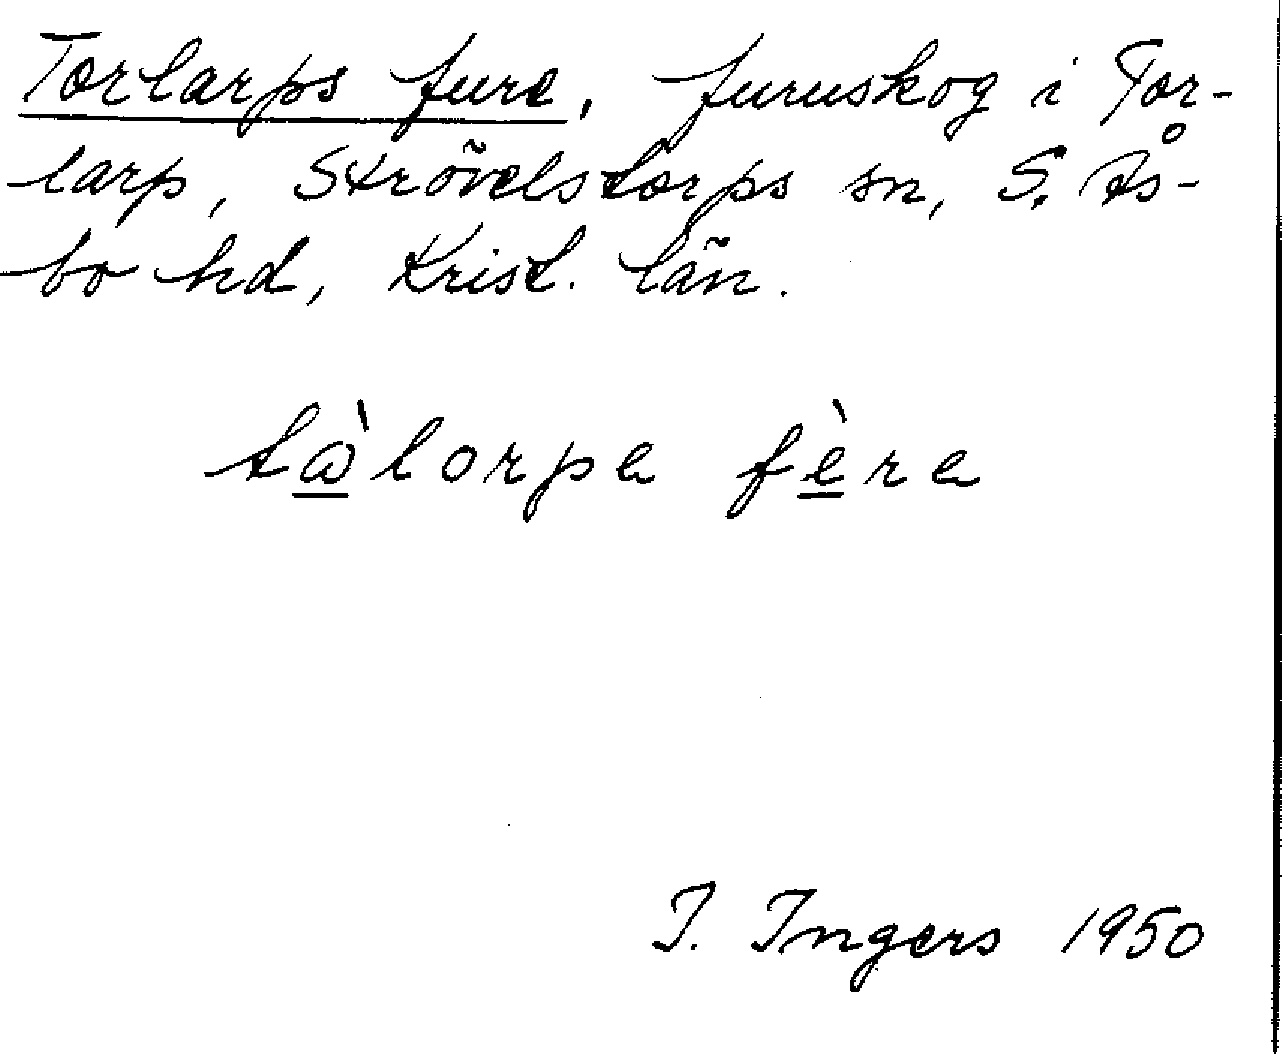 Torlarps fure, furuskog i Tor-
larp, Strövelstorps sn, S. Ås-
bo hd, Krist. län.
tàlorpa fère
I. Ingers 1950